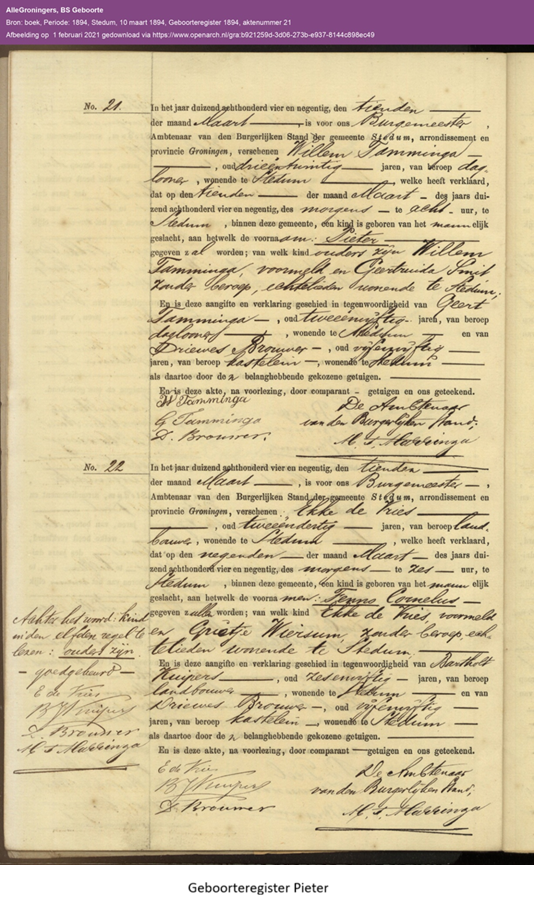 AlleGroningers, BS Geboorte
Bron: boek, Periode: 1894, Stedum, 10 maart 1894, Geboorteregister 1894, aktenummer 21
Afbeelding op 1 februari 2021 gedownload via https://www.openarch.nl/gra:b921259d-3d06-273b-e937-8144c898ec49
No. 21.
In het jaar duizend achthonderd vier en negentig, den tienden
der maand Maart, is voor ons Burgemeester,
Ambtenaar van den Burgerlijken Stand der gemeente Stedum, arrondissement en
provincie Groningen, verschenen Willem Tamminga
, oud drieentwintig jaren, van beroep dag-
looner, wonende te Stedum, welke heeft verklaard,
dat op den tienden der maand Maart des jaars dui-
zend achthonderd vier en negentig, des morgens te acht uur, te
Stedum, binnen deze gemeente, een kind is geboren van het mannelijk
geslacht, aan hetwelk de voornaam: Pieter
gegeven zal worden; van welk kind ouders zijn Willem
Tamminga, voormeld en Geertruida Smit
zonder beroep, echtelieden wonende te Stedum;
En is deze aangifte en verklaring geschied in tegenwoordigheid van Geert
Tamminga, oud tweeenvijftig jaren, van beroep
daglooner, wonende te Stedum en van
Driewes Brouwer, oud vijfenvijftig
jaren, van beroep kastelein, wonende te Stedum
als daartoe door de 2 belanghebbende gekozene getuigen.
En is deze akte, na voorlezing, door comparant getuigen en ons geteekend.
W Tamminga
G Tamminga
D. Brouwer
De Ambtenaar
van den Burgerlijken Stand,
No. 22.
In het jaar duizend achthonderd vier en negentig, den tienden
der maand Maart, is voor ons Burgemeester,
Ambtenaar van den Burgerlijken Stand der gemeente Stedum, arrondissement en
provincie Groningen, verschenen Ekke de Vries
, oud tweeëndertig jaren, van beroep land-
bouwer, wonende te Stedum, welke heeft verklaard,
dat op den negenden der maand Maart des jaars dui-
zend achthonderd vier en negentig, des morgens te zes uur, te
Stedum, binnen deze gemeente, een kind is geboren van het mannelijk
geslacht, aan hetwelk de voornamen: Tenno Cornelus
gegeven zullen worden; van welk kind Ekke de Vries, voormeld
en Grietje Wiersum, zonder beroep, ech-
telieden wonende te Stedum.
En is deze aangifte en verklaring geschied in tegenwoordigheid van Barthold
Kuipers, oud zesenvijftig jaren, van beroep
landbouwer, wonende te Stedum en van
Driewes Brouwer, oud vijfenvijftig
jaren, van beroep kastelein, wonende te Stedum
als daartoe door de 2 belanghebbende gekozene getuigen.
En is deze akte, na voorlezing, door comparant getuigen en ons geteekend.
E de Vries
B J Kuipers
D. Brouwer
De Ambtenaar
van den Burgerlijken Stand,
Achter het woord: kind
in den elfden regel te
lezen: ouders zijn
goedgekeurd
E de Vries
B J Kuipers
D. Brouwer
Geboorteregister Pieter